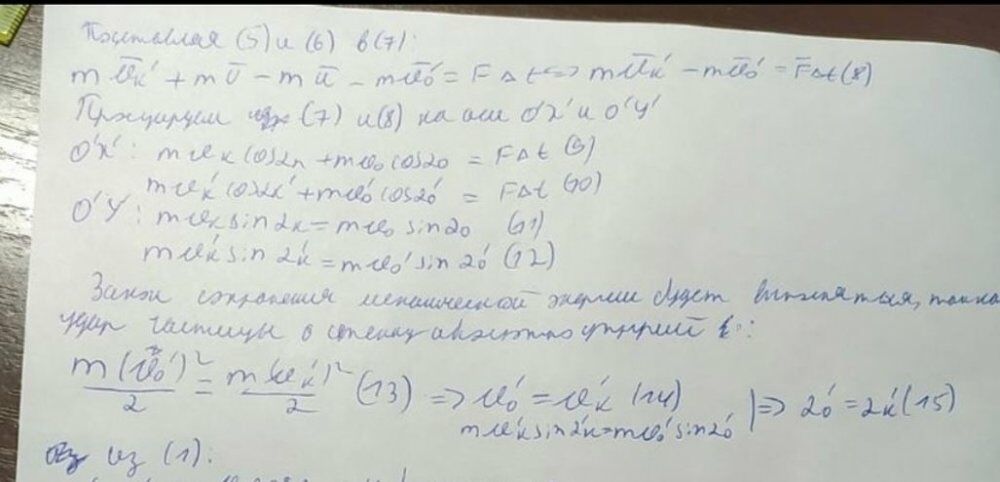 Подставляя (5) и (6) в (7):
m v̄ₖ' + m ū − m ū − m v̄₀' = F Δt ⇔ m v̄ₖ' − m v̄₀' = F̄Δt (8)
Проецируем (7) и (8) на оси O'X' и O'Y'
O'X': m vₖ cos αₖ + m v₀ cos α₀ = FΔt (9)
m vₖ' cos αₖ' + m v₀' cos α₀' = FΔt (10)
O'Y': m vₖ sin αₖ = m v₀ sin α₀ (11)
m vₖ' sin αₖ' = m v₀' sin α₀' (12)
Закон сохранения механической энергии будет выполняться,
удар частицы о стенку абсолютно упругий :
m(v₀')²/2 = m(vₖ')²/2 (13) ⇒ v₀' = vₖ' (14) | ⇒ α₀' = αₖ' (15)
m vₖ' sin αₖ' = m v₀' sin α₀'
из (1):